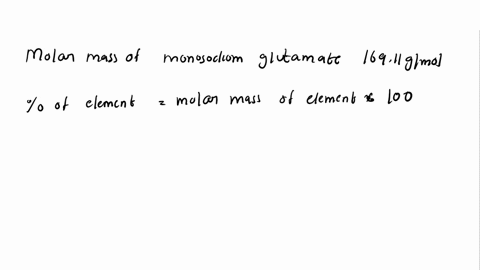 Molar mass of monosodium glutamate 169.11 g/mol
% of element = molar mass of element × 100